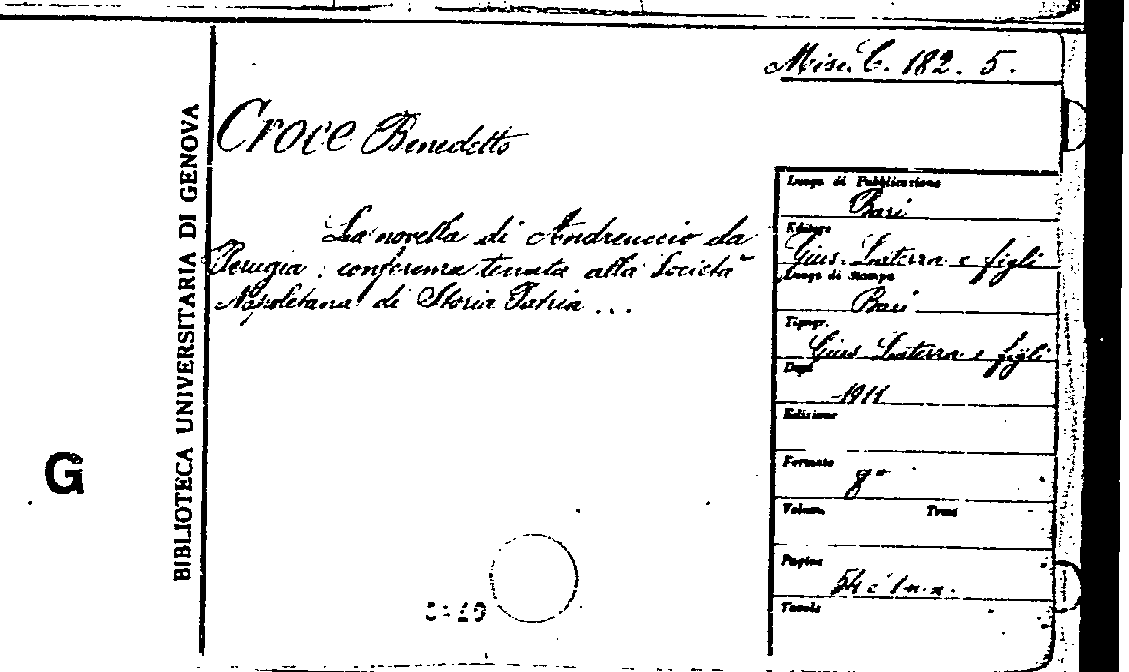 Misc. C. 182. 5.
Croce Benedetto
La novella di Andreuccio da
Perugia: conferenza tenuta alla Società
Napoletana di Storia Patria ...
BIBLIOTECA UNIVERSITARIA DI GENOVA
G
Luogo di Pubblicazione
Bari
Editore
Gius. Laterza e figli
Luogo di Stampa
Bari
Tipogr.
Gius Laterza e figli
Data
1911
Edizione
Formato
8°
Volum.
Tomi
Pagine
54 e 1 n.n.
Tavole